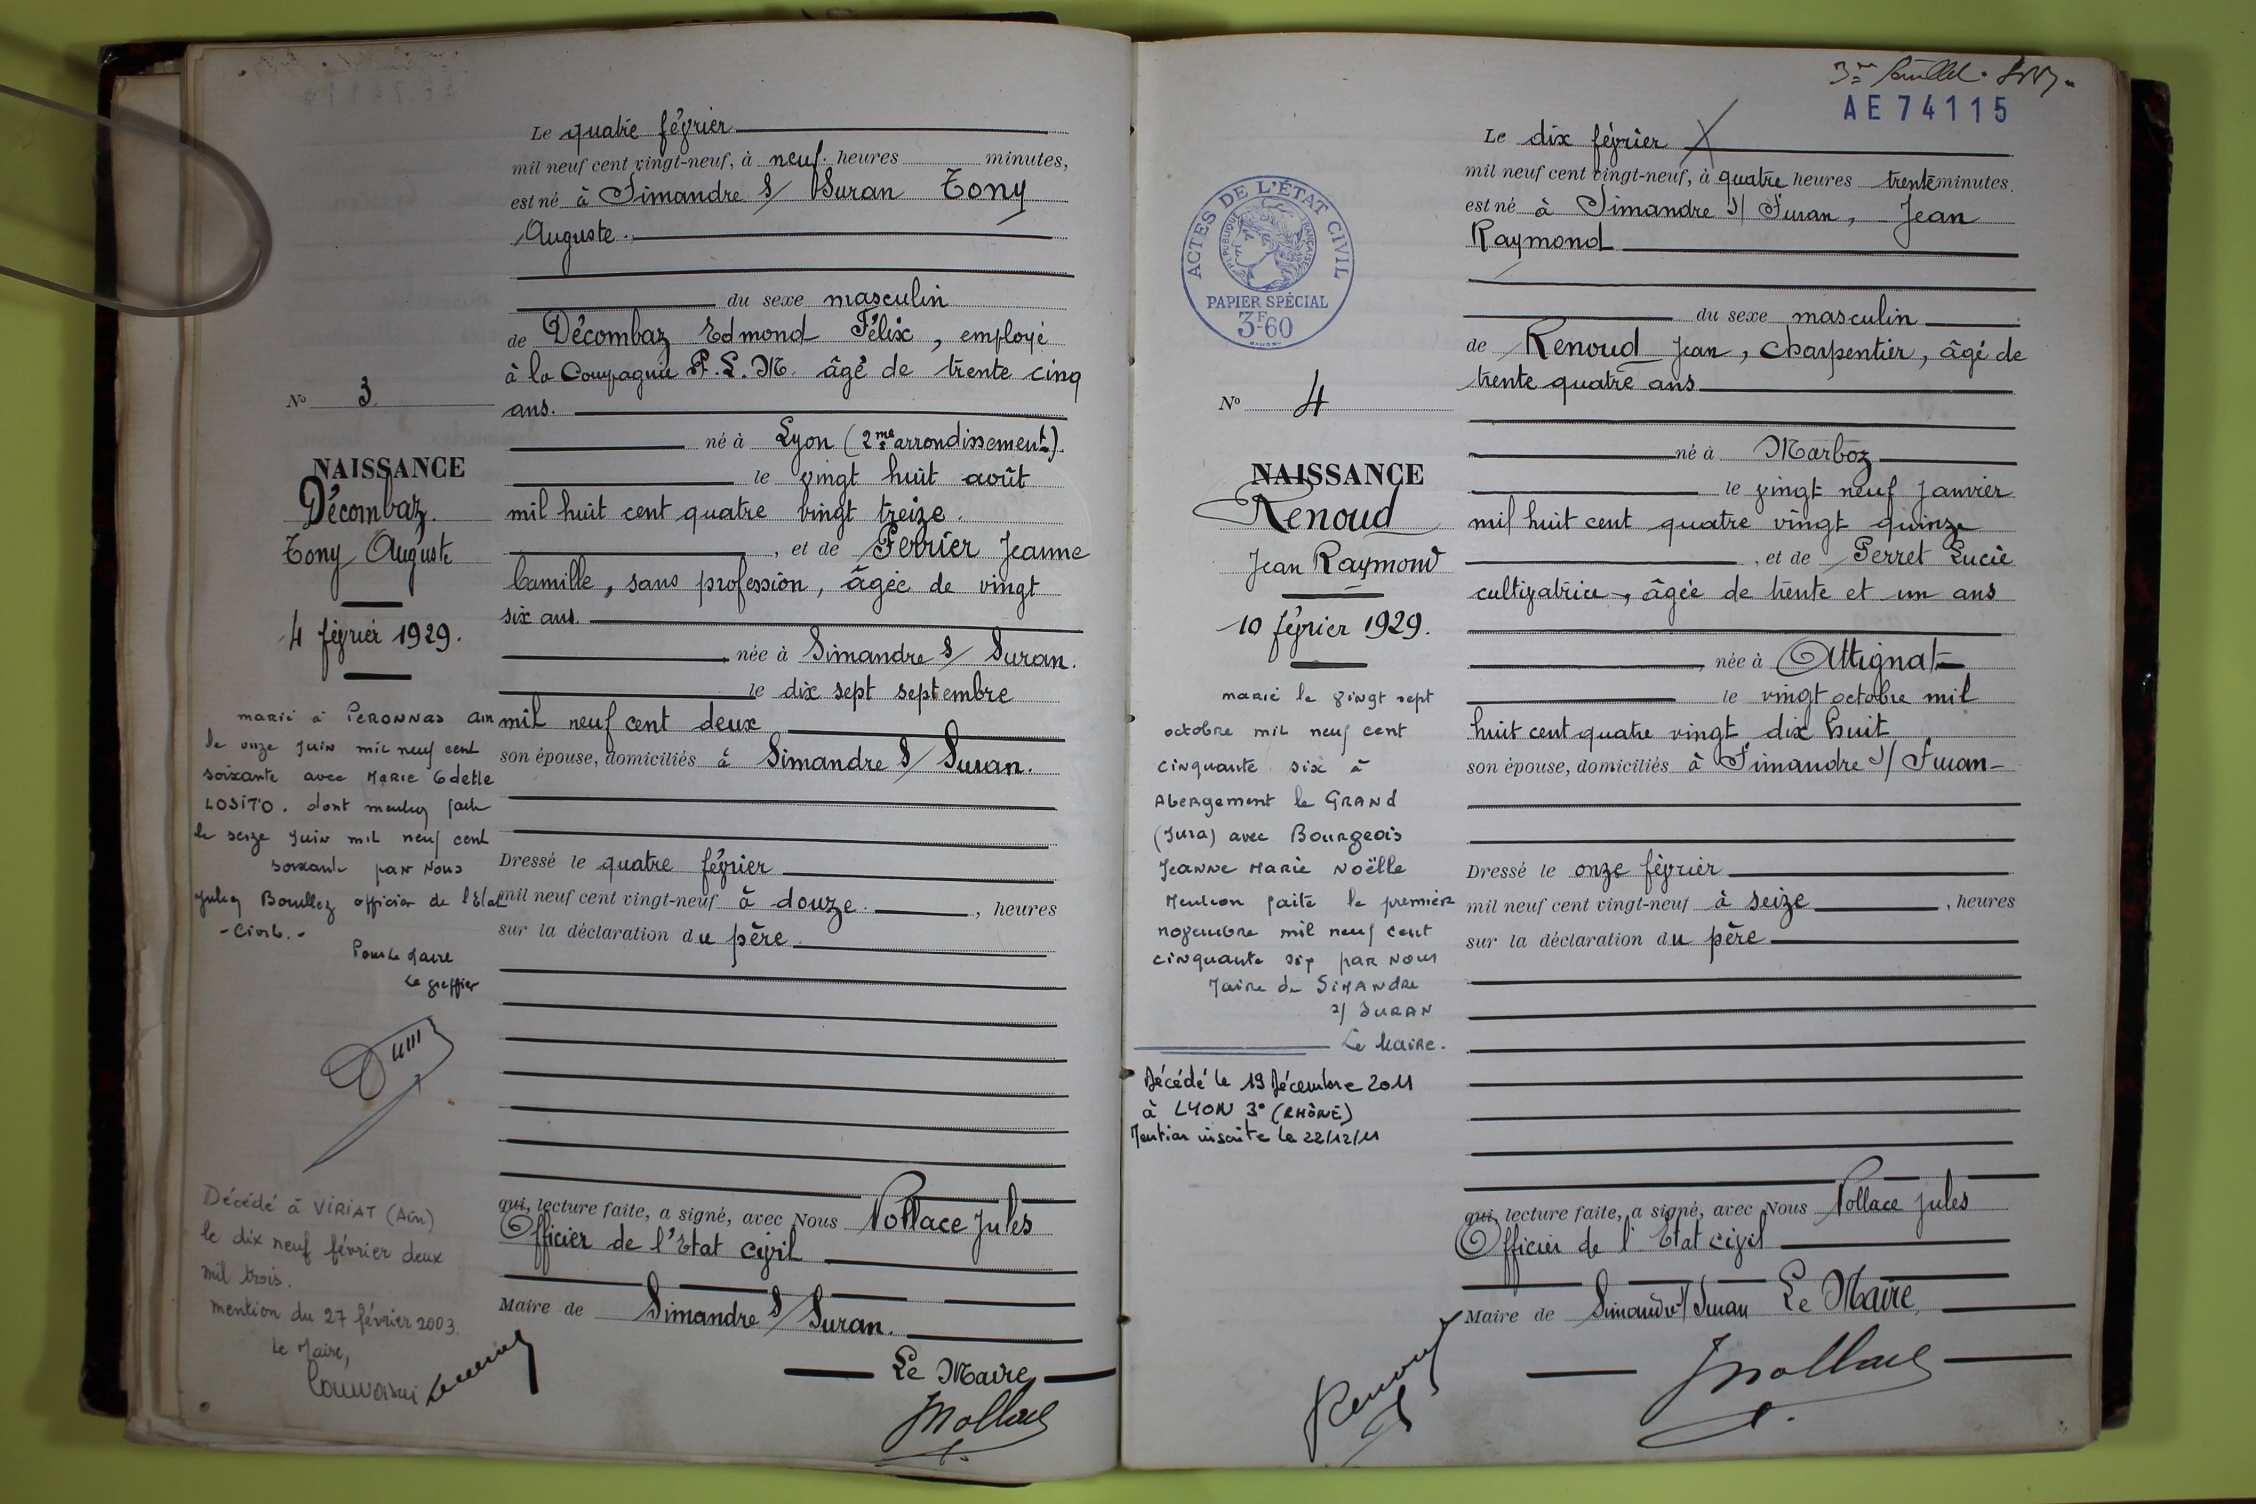 Le quatre février
mil neuf cent vingt-neuf, à neuf heures minutes,
est né à Simandre s/ Suran Tony
Auguste.
du sexe masculin
de Décombaz Edmond Félix, employé
à la Compagnie P.L.M. âgé de trente cinq
ans.
né à Lyon (2me arrondissement).
le vingt huit août
mil huit cent quatre vingt treize.
, et de Perrier Jeanne
Camille, sans profession, âgée de vingt
six ans.
née à Simandre s/ Suran.
le dix sept septembre
mil neuf cent deux
son épouse, domiciliés à Simandre s/ Suran.
Dressé le quatre février
mil neuf cent vingt-neuf à douze , heures
sur la déclaration du père.
qui, lecture faite, a signé, avec Nous Nollace Jules
Officier de l'Etat civil
Maire de Simandre s/ Suran.
Le Maire
JNollace
No 3
NAISSANCE
Décombaz.
Tony Auguste
4 février 1929.
marié à PERONNAS Ain
le onze juin mil neuf cent
soixante avec MARIE Odette
LOSITO. dont mention faite
le seize juin mil neuf cent
soixante par nous
officier de l'Etat
-Civil.-
Pour le Maire
Le greffier
Décédé à VIRIAT (Ain)
le dix neuf février deux
mil trois.
mention du 27 février 2003.
Le Maire,
3me feuillet.
AE 74115
Le dix février
mil neuf cent vingt-neuf, à quatre heures trente minutes.
est né à Simandre s/ Suran, Jean
Raymond
du sexe masculin
de Renoud Jean, charpentier, âgé de
trente quatre ans
né à Marboz
le vingt neuf janvier
mil huit cent quatre vingt quinze
, et de Perret Lucie
cultivatrice, âgée de trente et un ans
née à Attignat
le vingt octobre mil
huit cent quatre vingt dix huit
son épouse, domiciliés à Simandre s/ Suran
Dressé le onze février
mil neuf cent vingt-neuf à seize , heures
sur la déclaration du père
qui, lecture faite, a signé, avec Nous Nollace Jules
Officier de l'Etat civil
Maire de Simandre s/ Suran Le Maire
Renoud
JNollace
ACTES DE L'ÉTAT CIVIL
RÉPUBLIQUE FRANÇAISE
PAPIER SPÉCIAL
3F60
No 4
NAISSANCE
Renoud
Jean Raymond
10 février 1929.
marié le vingt sept
octobre mil neuf cent
cinquante six à
Abergement le GRAND
(Jura) avec Bourgeois
Jeanne Marie Noëlle
Mention faite le premier
novembre mil neuf cent
cinquante six par nous
Maire de SIMANDRE
s/ SURAN
Le Maire.
Décédé le 19 Décembre 2011
à LYON 3e (RHÔNE)
Mention inscrite le 22/12/11